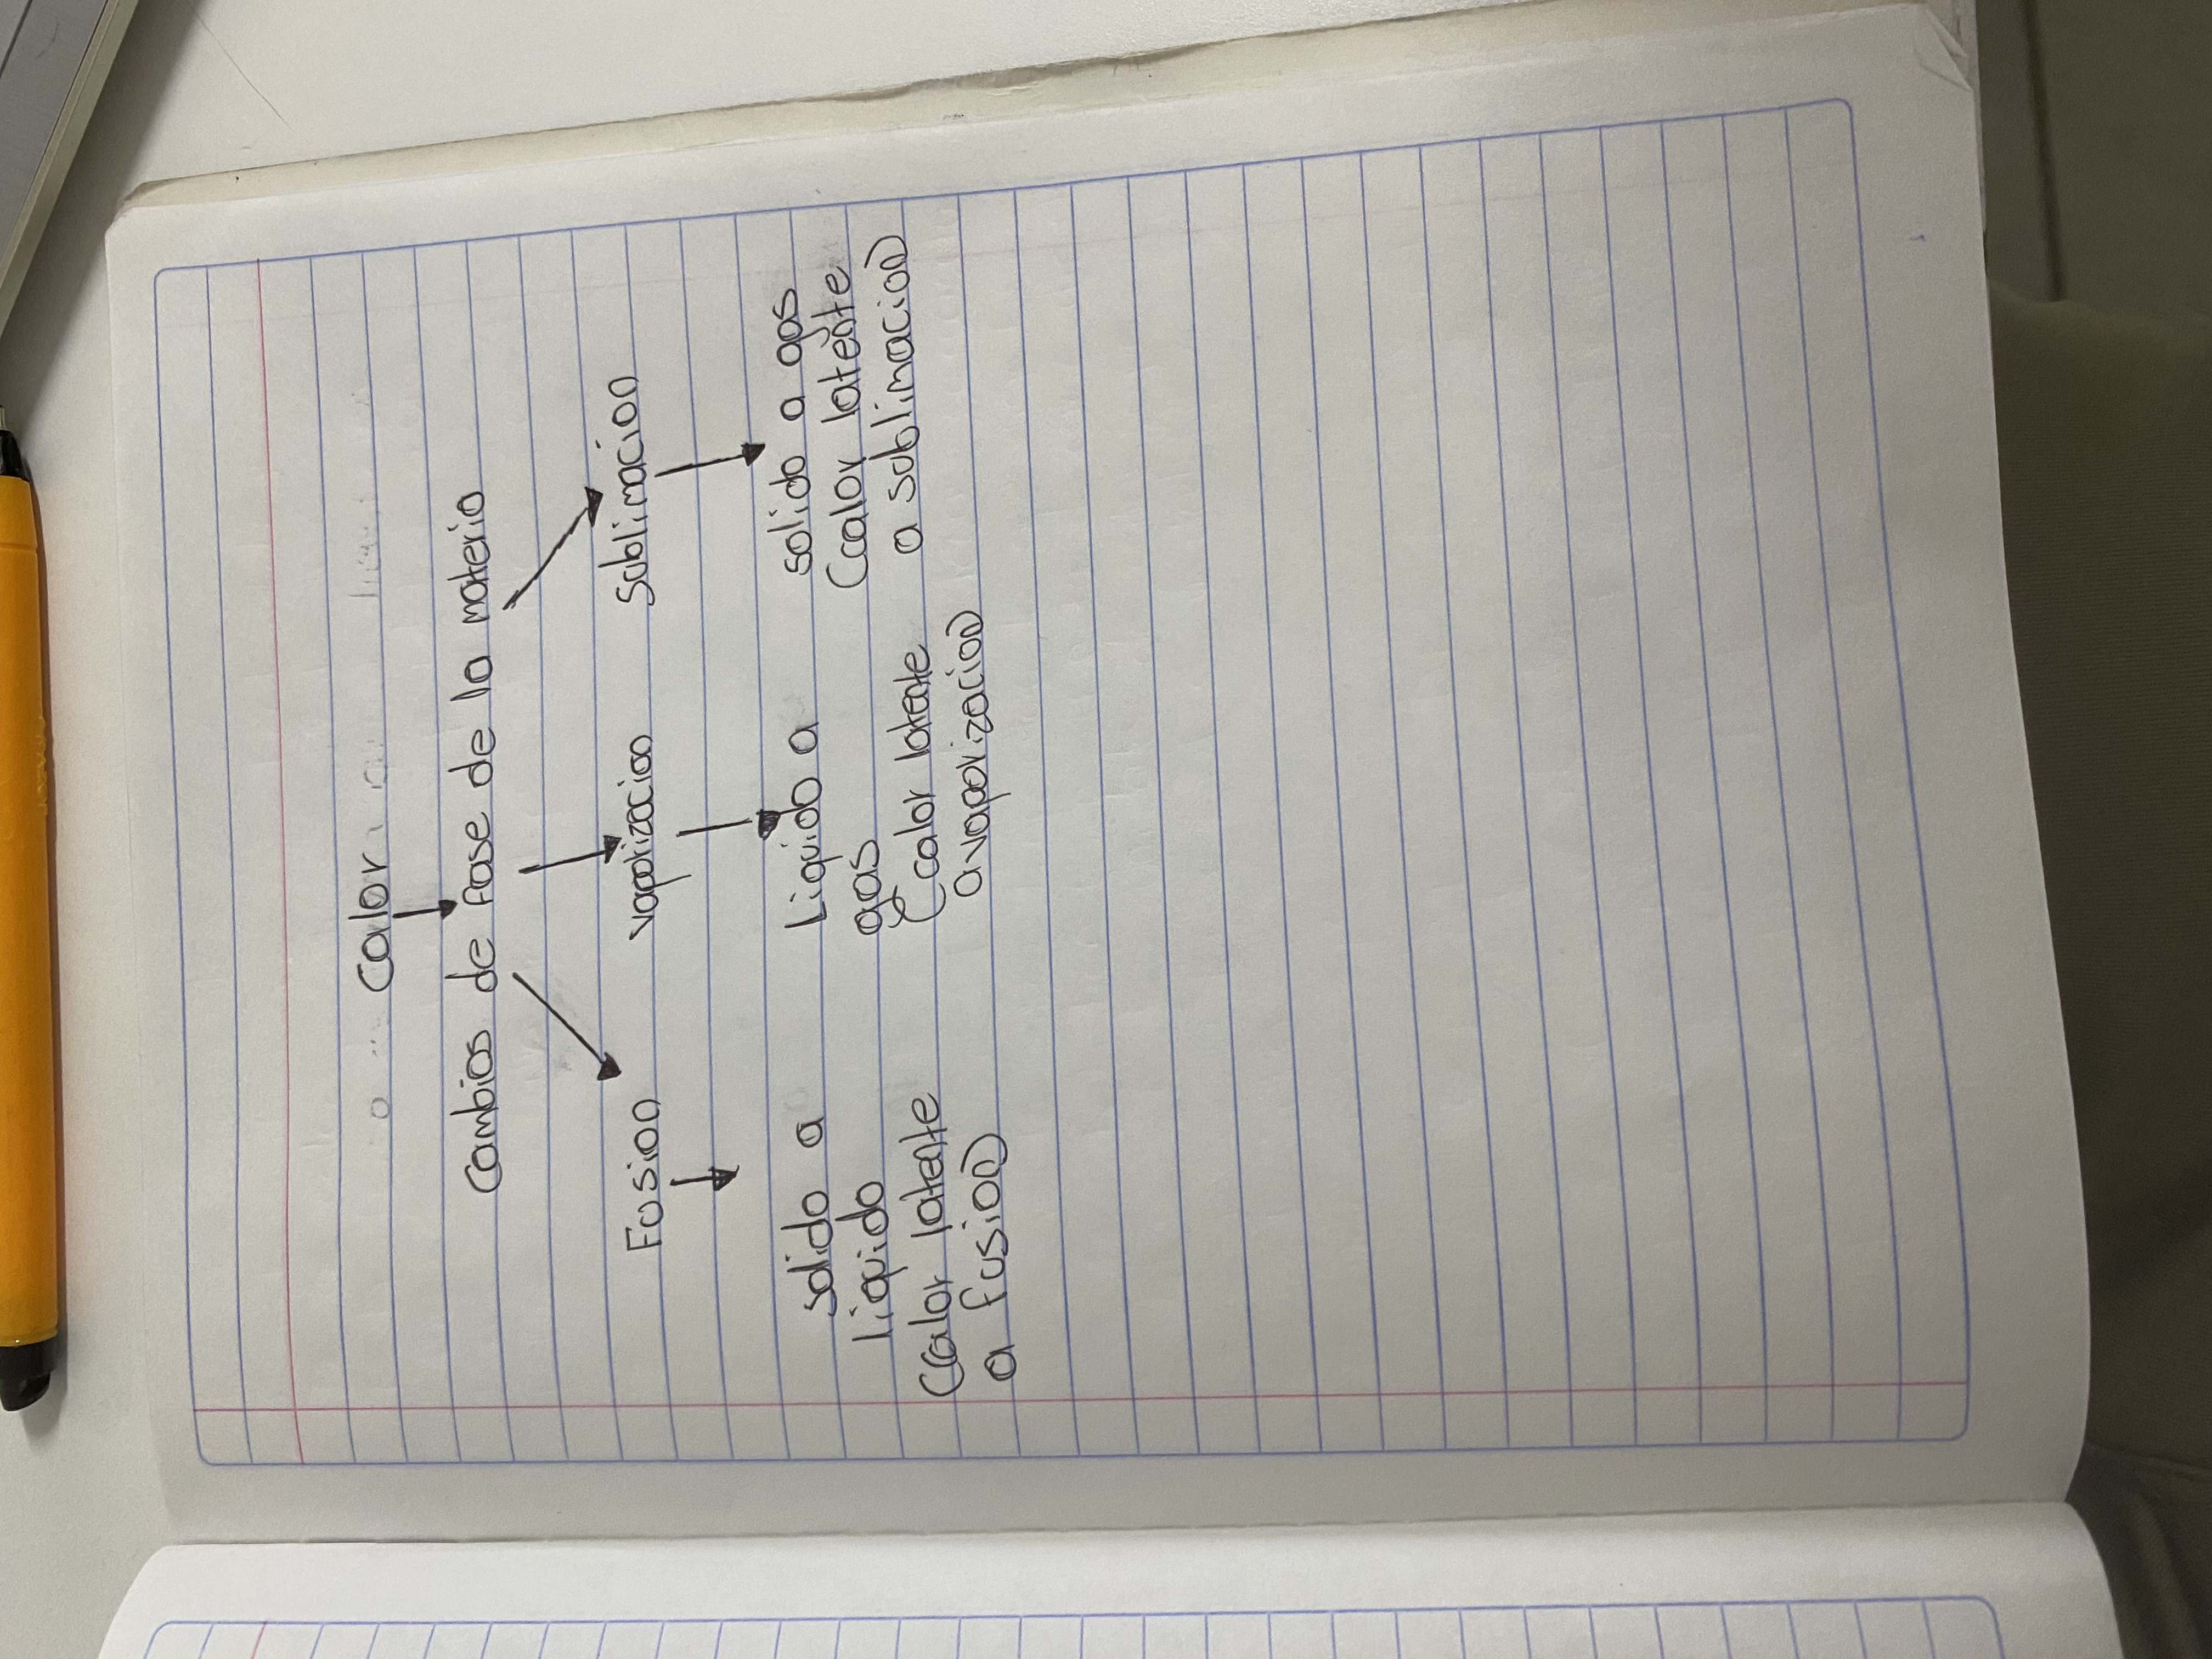 Calor
Cambios de fase de la materia
Fusion vaporizacion Sublimacion
solido a
liquido
(Calor latente
a fusion)
Liquido a
gas
(calor latente
a vaporizacion)
solido a gas
(calor latente
a sublimacion)